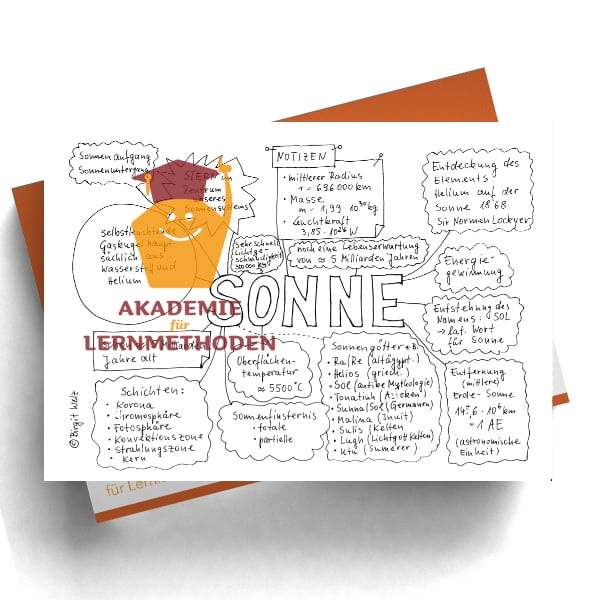 Sonnenaufgang
Sonnenuntergang
STERN im
Zentrum
unseres
Sonnensystems
NOTIZEN
• mittlerer Radius
r = 696 000 km
• Masse
m = 1,99 · 10³⁰ kg
• Leuchtkraft
3,85 · 10²⁶ W
Entdeckung des
Elements
Helium auf der
Sonne 1868
Sir Norman Lockyer
selbstleuchtende
Gaskugel haupt-
sächlich aus
Wasserstoff und
Helium
Sehr schnell
Lichtge-
schwindigkeit
300 000 km/s
noch eine Lebenserwartung
von ≈ 5 Milliarden Jahren
Energie-
gewinnung
SONNE
AKADEMIE
für
LERNMETHODEN
Milliarden
Jahre alt
Entstehung des
Namens: SOL
→ lat. Wort
für Sonne
Oberflächen-
temperatur
≈ 5500°C
Sonnengötter z.B.
• Ra/Re (altägypt.)
• Helios (griech.)
• Sol (antike Mythologie)
• Tonatiuh (Azteken)
• Sunna/Sol (Germanen)
• Malina (Inuit)
• Sulis (Kelten
• Lugh (Lichtgott Kelten)
• Utu (Sumerer)
Entfernung
(mittlere)
Erde-Sonne
149,6 · 10⁶ km
= 1 AE
(astronomische
Einheit)
Schichten:
• Korona
• Chromosphäre
• Fotosphäre
• Konvektionszone
• Strahlungszone
• Kern
Sonnenfinsternis
• totale
• partielle
© Birgit Welz
für Lern